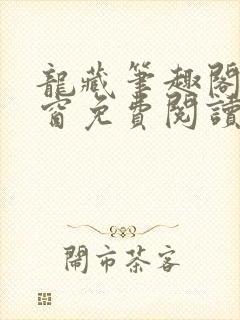 龍藏筆趣閣
窗免費閱讀
鬧市茶客